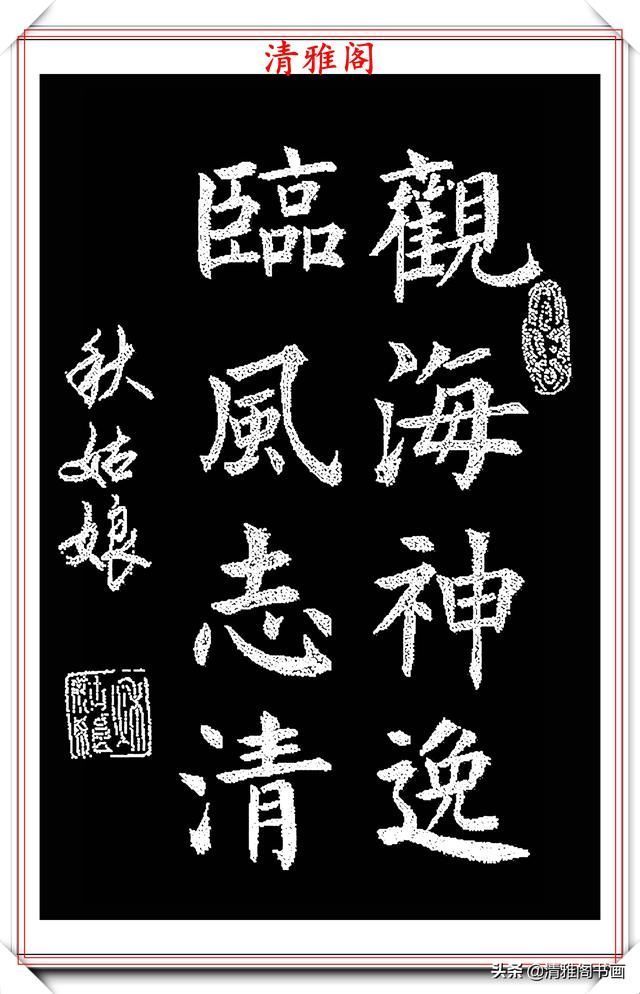 清雅阁
觀海神逸
臨風志清
秋姑娘
头条@清雅阁书画